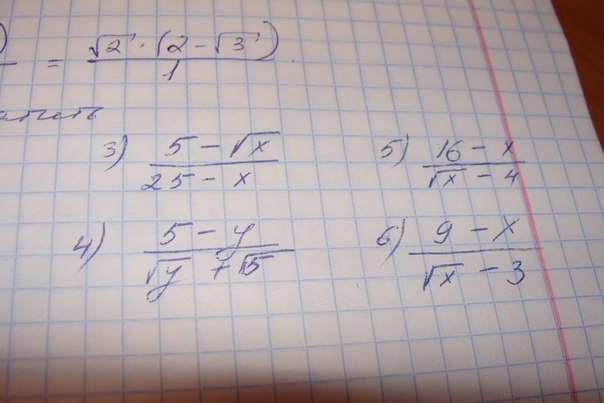 = √2 · (2 - √3) / 1
3) (5 - √x) / (25 - x)
5) (16 - x) / (√x - 4)
4) (5 - y) / (√y + √5)
6) (9 - x) / (√x - 3)